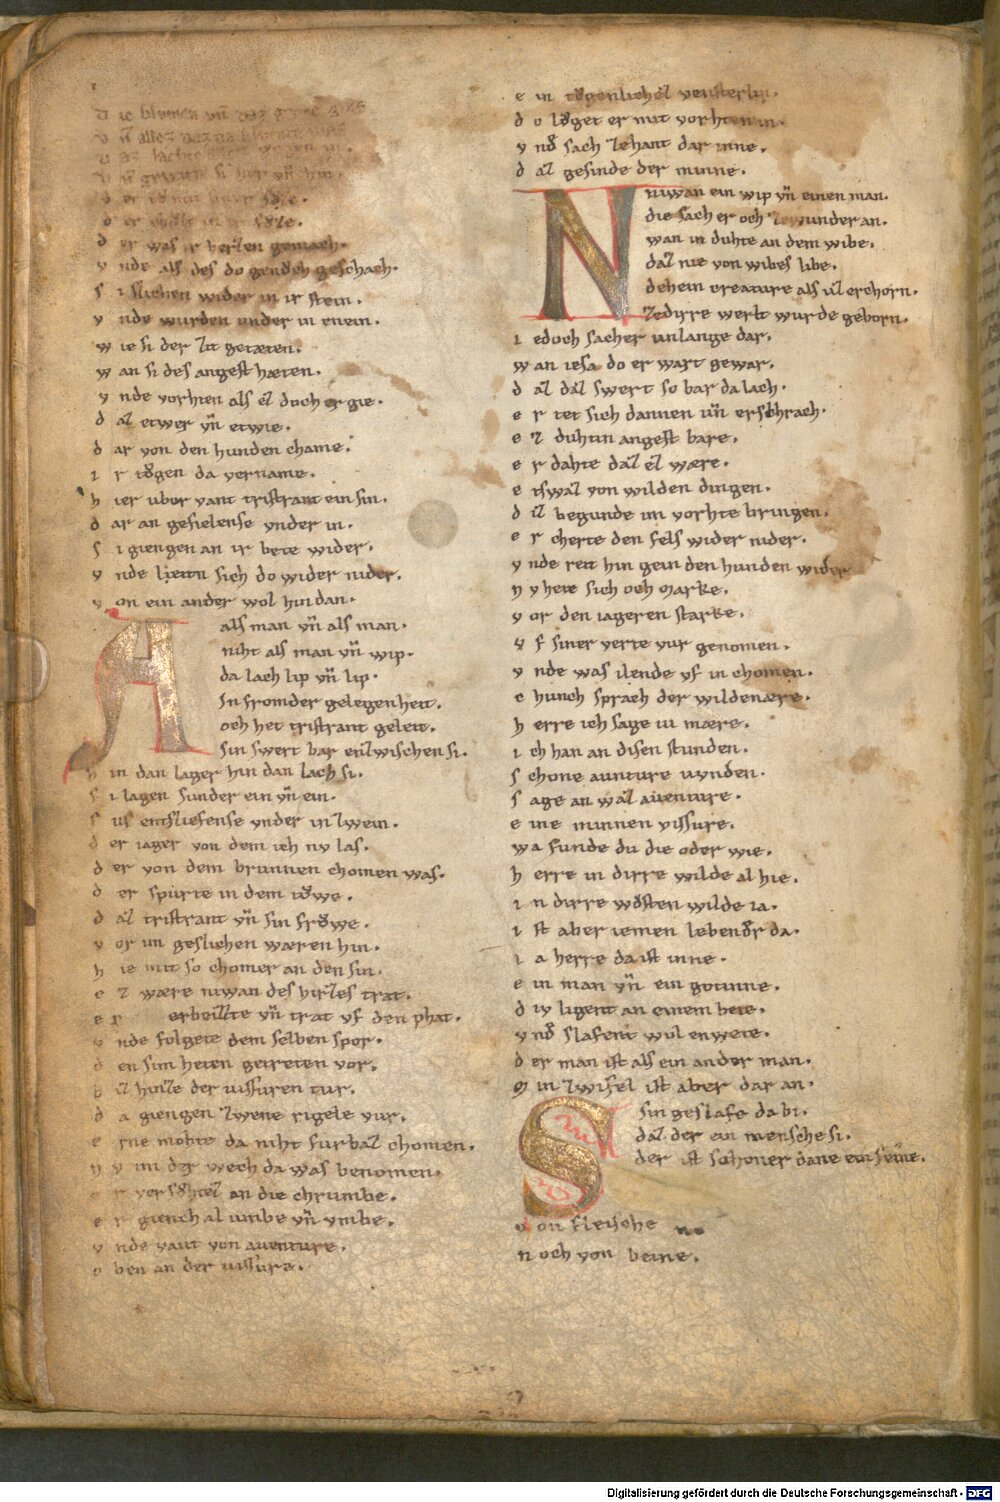 d ie blůmen vn̄ daz gras
v n̄ allez daz
d az lachte
v n̄ si her vn̄ hin.
d er
d er
d er was ir herzen gemach.
v nde als des do genůch geschach.
s i slichen wider in ir stein.
v nde wurden under in enein.
w ie si der zit getæten.
w an si des angest hæten.
v nde vorhten als ez doch ergie.
d az etwer vn̄ etwie.
d ar von den hunden chame.
i r tŏgen da vername.
h ier ubor vant tristrant ein sin.
d ar an gesielense vnder in.
s i giengen an ir bete wider.
v nde lieitn sich do wider nider.
v on ein ander wol hin dan.
A als man vn̄ als man.
niht als man vn̄ wip.
da lach lip vn̄ lip.
In fromder gelegenheit.
och het tristrant geleit.
Sin swert bar enzwischen si.
h in dan lager hin dan lach si.
s i lagen sunder ein vn̄ ein.
s us entsliefense vnder in zwein.
d er iager von dem ich nv las.
d er von dem brunnen chomen was.
d er spurte in dem tŏwe.
d az tristrant vn̄ sin frŏwe.
v or im geslichen wæren hin.
h ie mit so chomer an den sin.
e z wære niwan des hirzes trat.
e r erbeizte vn̄ trat vf den phat.
v nde folgete dem selben spor.
d en sim heten getreten vor.
b iz hinze der uissuren tur.
d a giengen zwene rigele vur.
e rne mohte da niht furbaz chomen.
n v im der wech da was benomen.
e r versůhtez an die chrumbe.
e r giench al umbe vn̄ vmbe.
v nde vant von auenture.
o ben an der uissure.
e in tŏgenlichez vensterlin.
d o lŏget er mit vorhten in.
v nd̄ sach zehant dar inne.
d az gesinde der minne.
N niwan ein wip vn̄ einen man.
die sach er och ze wunder an.
wan in duhte an dem wibe.
daz nie von wibes libe.
dehein creature als uz erchorn.
Zedirre werlt wurde geborn.
i edoch sacher unlange dar.
w an iesa do er wart gewar.
d az daz swert so bar da lach.
e r tet sich dannen vn̄ erschrach.
e z duhtin angest bare.
e r dahte daz ez wære.
e tswaz von wilden dingen.
d iz begunde im vorhte bringen.
e r cherte den fels wider nider.
v nde reit hin gein den hunden wider
n v hete sich och marke.
v or den iageren starke.
v f siner verte vur genomen.
v nde was ilende vf in chomen.
c hunch sprach der wildenære.
h erre ich sage iu mære.
i ch han an disen stunden.
s chone aunture uunden.
s age an waz auenture.
e ine minnen uissure.
wa funde du die oder wie.
h erre in dirre wilde al hie.
i n dirre wŏsten wilde ia.
i st aber iemen lebend̄r da.
i a herre da ist inne.
e in man vn̄ ein gotinne.
d iv ligent an einem bete.
v nd̄ slafent wol enwete.
d er man ist als ein ander man.
m in zwifel ist aber dar an.
S sin geslafe da bi.
daz der ein mensche si.
der ist schoner dane ein feine.
v on fleische
n och von beine.
Digitalisierung gefördert durch die Deutsche Forschungsgemeinschaft - DFG